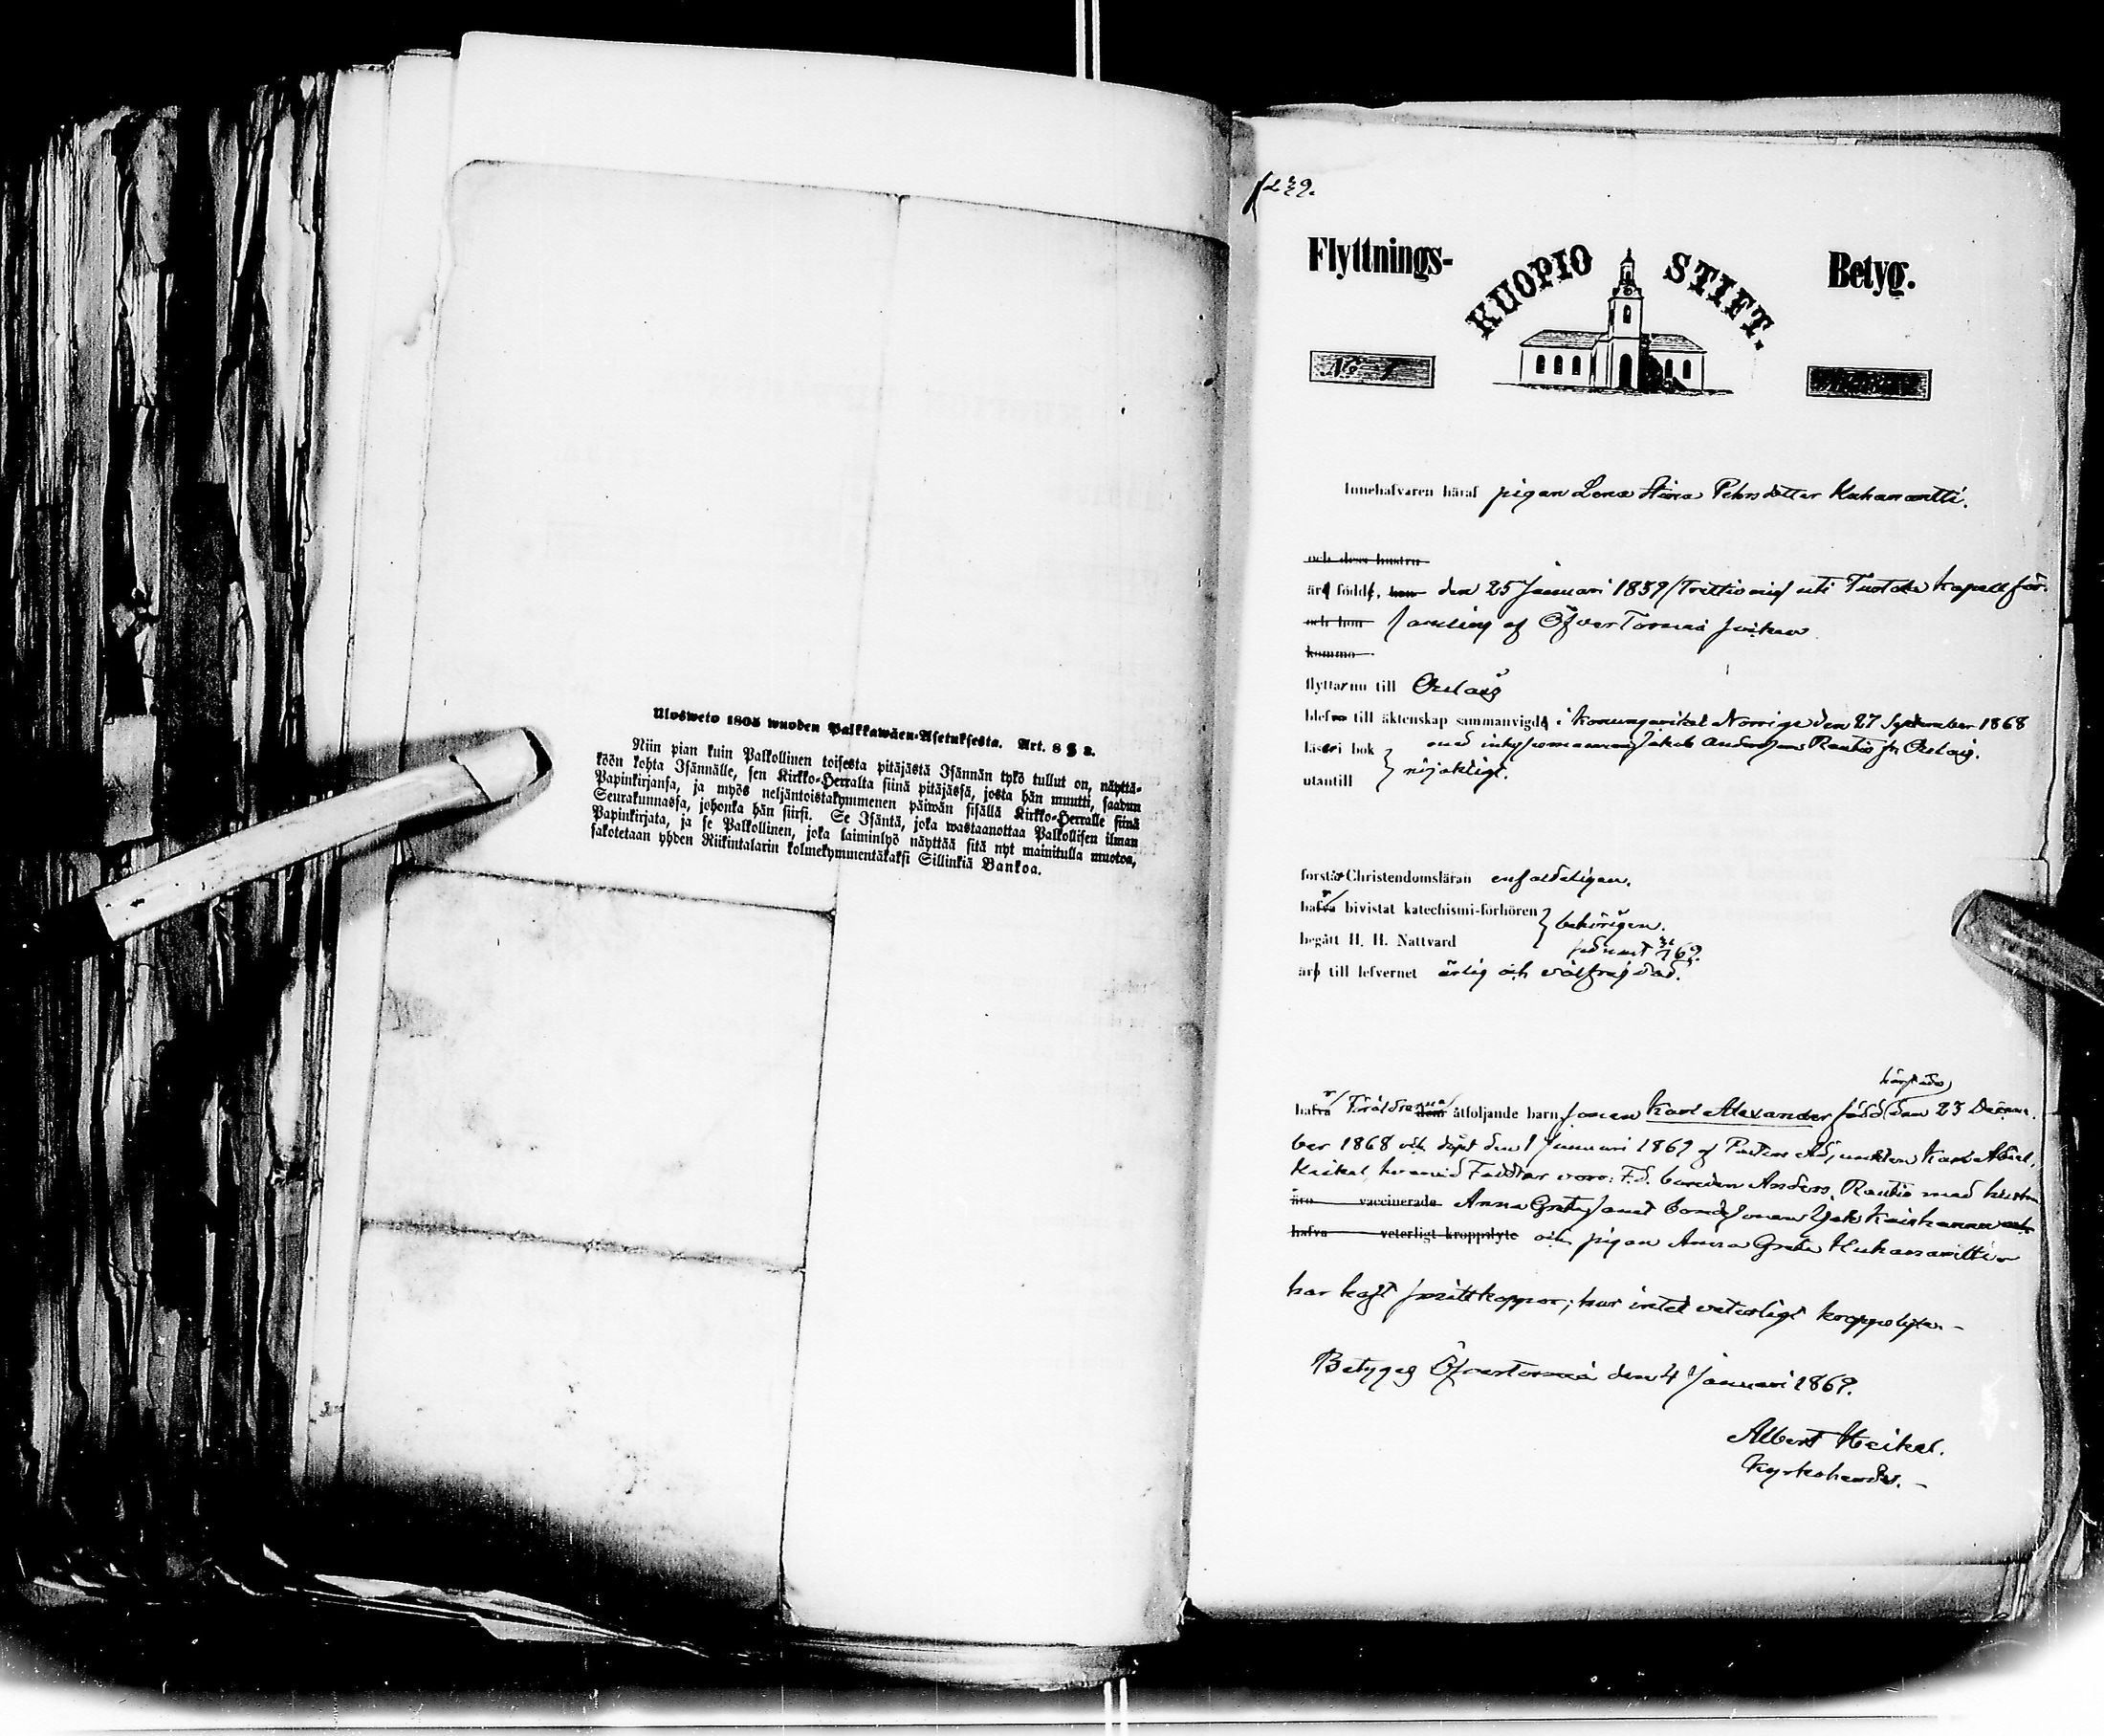 Ulosweto 1805 wuoden Palkkawäen-Asetuksesta. Art. 8 § 2.
Niin pian kuin Palkollinen toisesta pitäjästä Isännän tykö tullut on, näyttä-
köön kohta Isännälle, sen Kirkko-Herralta siinä pitäjässä, josta hän muutti, saadun
Papinkirjansa, ja myös neljäntoistakymmenen päiwän sisällä Kirkko-Herralle siinä
Seurakunnassa, johonka hän siirsi. Se Isäntä, joka wastaanottaa Palkollisen ilman
Papinkirjata, ja se Palkollinen, joka laiminlyö näyttää sitä nyt mainitulla muotoa,
sakotetaan yhden Riikintalarin kolmekymmentäkaksi Sillinkiä Bankoa.
Flyttnings- KUOPIO STIFT. Betyg.
No 1
Innehafvaren häraf pigan Lena Stina Pehrsdotter Kuhanantti.
och dess hustru
är född, den 25 Januari 1839 /Trettionio/ uti Turtola Kapellför-
och hon samling af ÖfverTorneå socken
kommo
flyttar nu till
blef till äktenskap sammanvigd i konungariket Norrige den 27 September 1868
läser i bok med inhysesmannen Jakob Andersson Rautio fr.
utantill } nöjaktigt.
förstår Christendomsläran enfaldeligen.
hafva bivistat katechismi-förhören } behörigen.
begått H. H. Nattvard sednast 69.
är till lefvernet ärlig och välfrejdad.
härstädes
hafva Föräldrarna åtföljande barn sonen Karl Alexander född den 23 Decem-
ber 1868 och döpt den 1 Januari 1869 af Pastors Adjunkten Karl Abiel
Heikel, hvarvid Faddrar voro: F.d. bonden Anders Rautio med hustru
äro vaccinerade Anna Greta samt bondesonen
hafva veterligt kroppslyte och pigan Anna Greta Kuhanantti
har haft smittkoppor; har intet veterligt kroppslyte. –
Betygas Öfvertorneå den 4 Januari 1869.
Albert Heikel.
Kyrkoherde. –